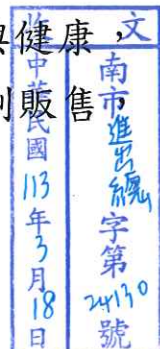 與健康，
販售，
收文
南市進出總字第24130號
中華民國113年3月18日